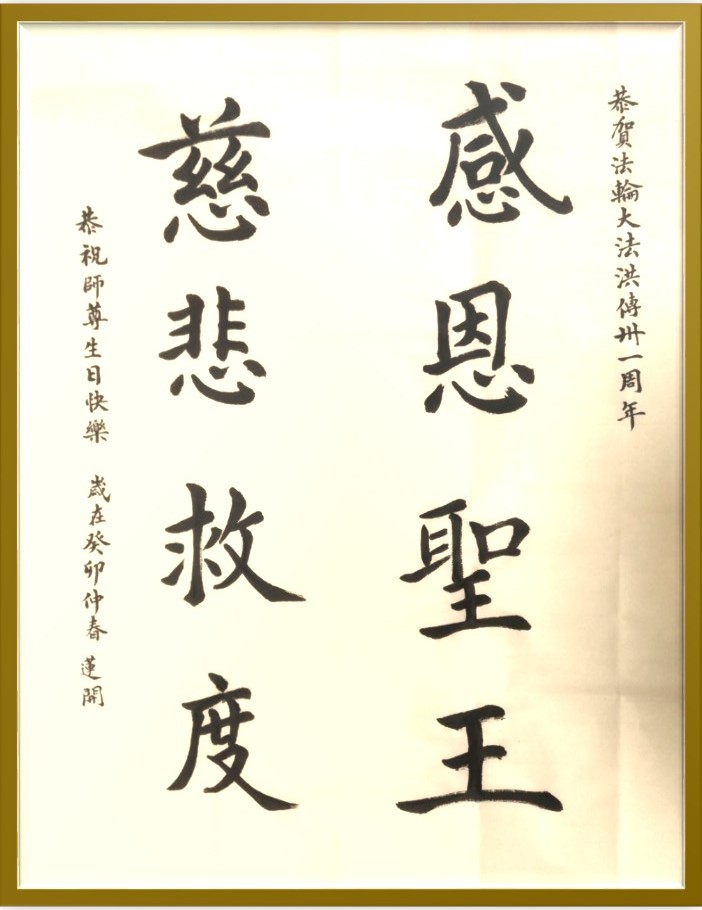 恭賀法輪大法洪傳卅一周年
感恩聖王
慈悲救度
恭祝師尊生日快樂 歲在癸卯仲春 蓮開